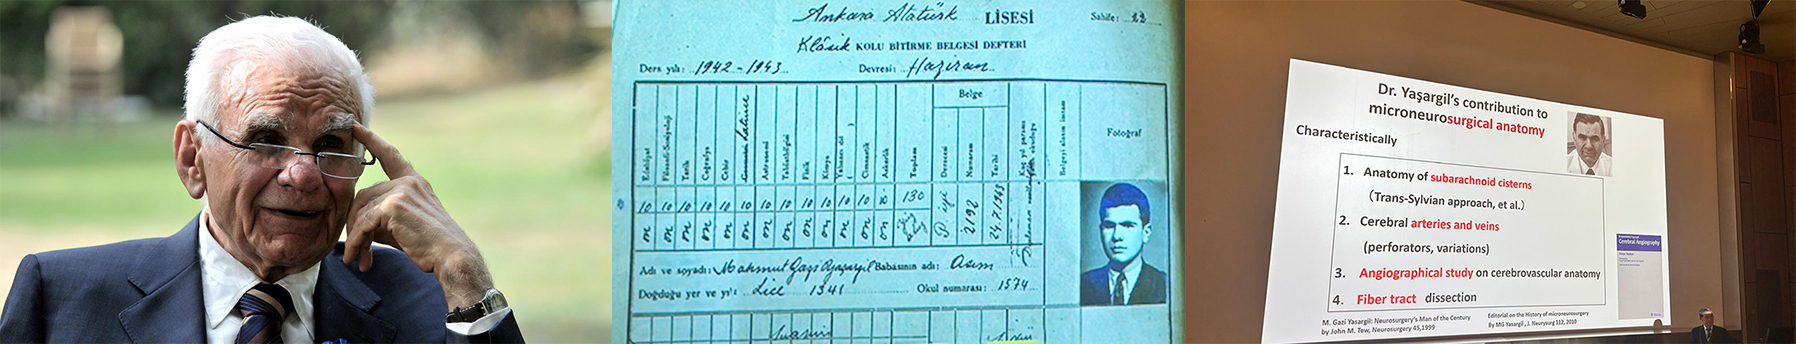 Ankara Atatürk LİSESİ
Sahife: 22
Klâsik KOLU BİTİRME BELGESİ DEFTERİ
Ders yılı: 1942-1943 Devresi: Haziran
Belge
Edebiyat
Tarih
Coğrafya
Cebir
Astronomi
Fizik
Kimya
Askerlik
Toplam
Derecesi
Numarası
Tarihi
Fotoğraf
10 10 10 10 10 10 10 10 10 10 10 10 130
on on on on on on on on on on on on
P. iyi
2192
24.7.1943
Adı ve soyadı: Mahmut Gazi Babasının adı: Asım
Doğduğu yer ve yıl: Lice 1341 Okul numarası: 1574
Dr. Yaşargil's contribution to
microneurosurgical anatomy
Characteristically
1. Anatomy of subarachnoid cisterns
(Trans-Sylvian approach, et al.)
2. Cerebral arteries and veins
(perforators, variations)
3. Angiographical study on cerebrovascular anatomy
4. Fiber tract dissection
Cerebral Angiography
M. Gazi Yasargil: Neurosurgery's Man of the Century
by John M. Tew, Neurosurgery 45,1999
Editorial on the History of microneurosurgery
By MG Yasargil, J. Neurysurg 112, 2010